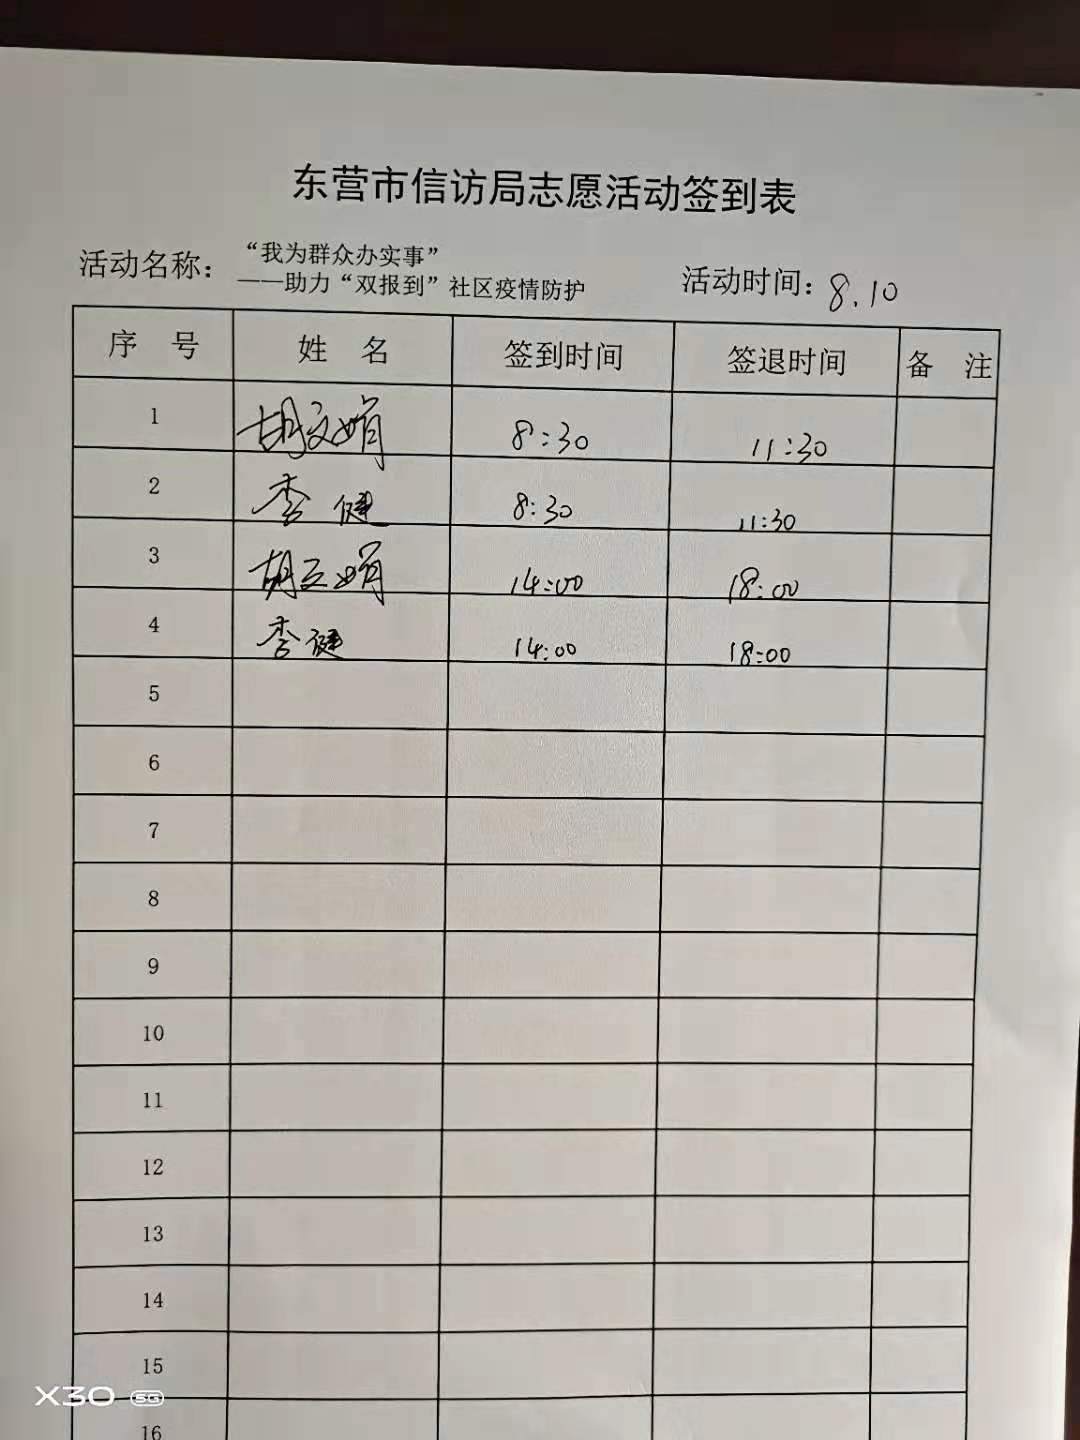 东营市信访局志愿活动签到表
活动名称：“我为群众办实事”
——助力“双报到”社区疫情防护
活动时间：8.10
序 号 姓 名 签到时间 签退时间 备 注
1 胡文娟 8:30 11:30
2 李健 8:30 11:30
3 胡文娟 14:00 18:00
4 李健 14:00 18:00
5
6
7
8
9
10
11
12
13
14
15
16
X30 5G